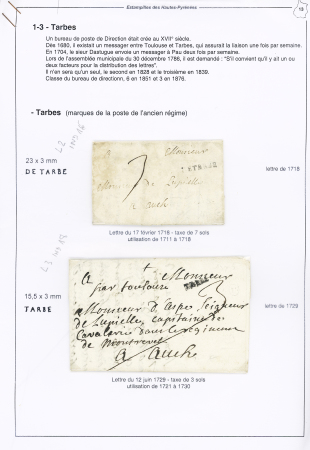 Estampilles des Hautes-Pyrénées
13
1-3 - Tarbes
Un bureau de poste de Direction était crée au XVII° siècle.
Dès 1680, il existait un messager entre Toulouse et Tarbes, qui assurait la liaison une fois par semaine.
En 1704, le sieur Dastugue envoie un messager à Pau deux fois par semaine.
Lors de l'assemblée municipale du 30 décembre 1786, il est demandé : "S'il convient qu'il y ait un ou
deux facteurs pour la distribution des lettres".
Il n'en sera qu'un seul, le second en 1828 et le troisième en 1839.
Classe du bureau de direction, 6 en 1851 et 3 en 1876.
- Tarbes (marques de la poste de l'ancien régime)
L2
IND 16
23 x 3 mm
DE TARBE
A
Monsieur
Monsieur de
a Auch
lettre de 1718
Lettre du 17 février 1718 - taxe de 7 sols
utilisation de 1711 à 1718
15,5 x 3 mm
TARBE
A Monsieur
par toulouse
TARBE
Monsieur D aspe Seigneur
de capitaine de
Cavalerie dans le regiment
de
a Auch
lettre de 1729
Lettre du 12 juin 1729 - taxe de 3 sols
utilisation de 1721 à 1730